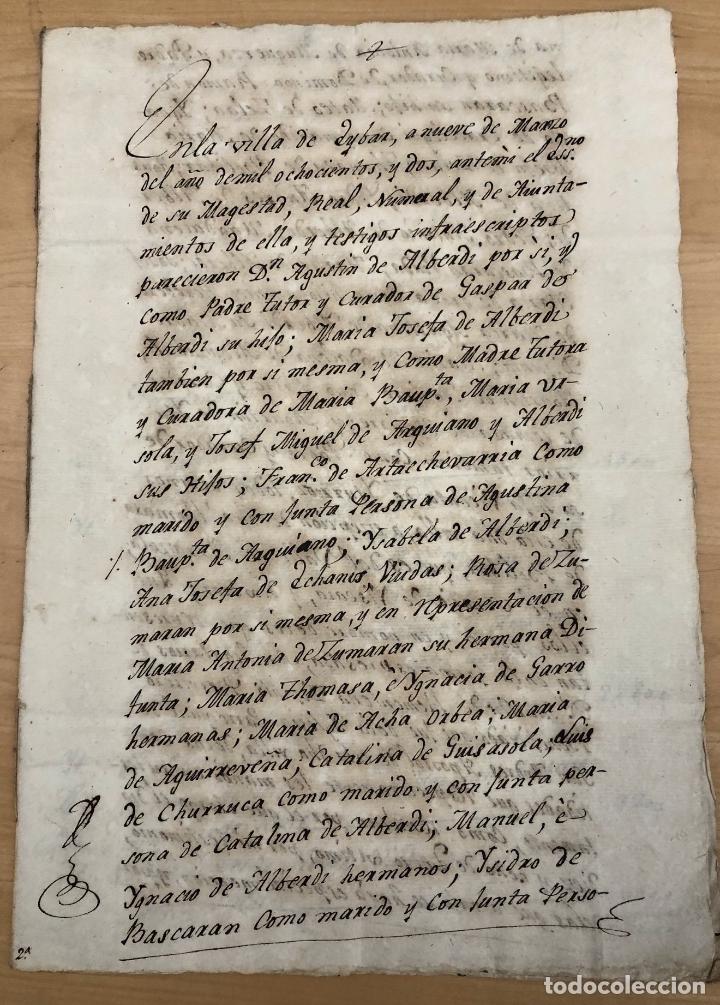 En la villa de Eybar, a nueve de Marzo
del año de mil ochocientos, y dos, ante mi el Ess.no
de su Magestad, Real, Numeral, y de Aiunta-
mientos de ella, y testigos infraescriptos
parecieron D.n Agustin de Alberdi por si, y
como Padre tutor y curador de Gaspar de
Alberdi su hijo; Maria Josefa de Alberdi
tambien por si mesma, y como Madre tutora
y curadora de Maria Baup.ta, Maria Ur-
sola, y Josef Miguel de Arguiano y Alberdi
sus Hijos; Fran.co de Artaechevarria como
marido y conjunta Persona de Agustina
Baup.ta de Arguiano; Ysabela de Alberdi;
Ana Josefa de Echanis, Viudas; Rosa de Zu-
maran por si mesma, y en representacion de
Maria Antonia de Zumaran su hermana Di-
funta; Maria Thomasa, e Ygnacia de Garro
hermanas; Maria de Acha Orbea; Maria
de Aguirreveña; Catalina de Guisasola; Luis
de Churruca como marido y conjunta per-
sona de Catalina de Alberdi; Manuel, è
Ygnacio de Alberdi hermanos; Ysidro de
Bascaran como marido y conjunta Perso-
2.a
todocoleccion